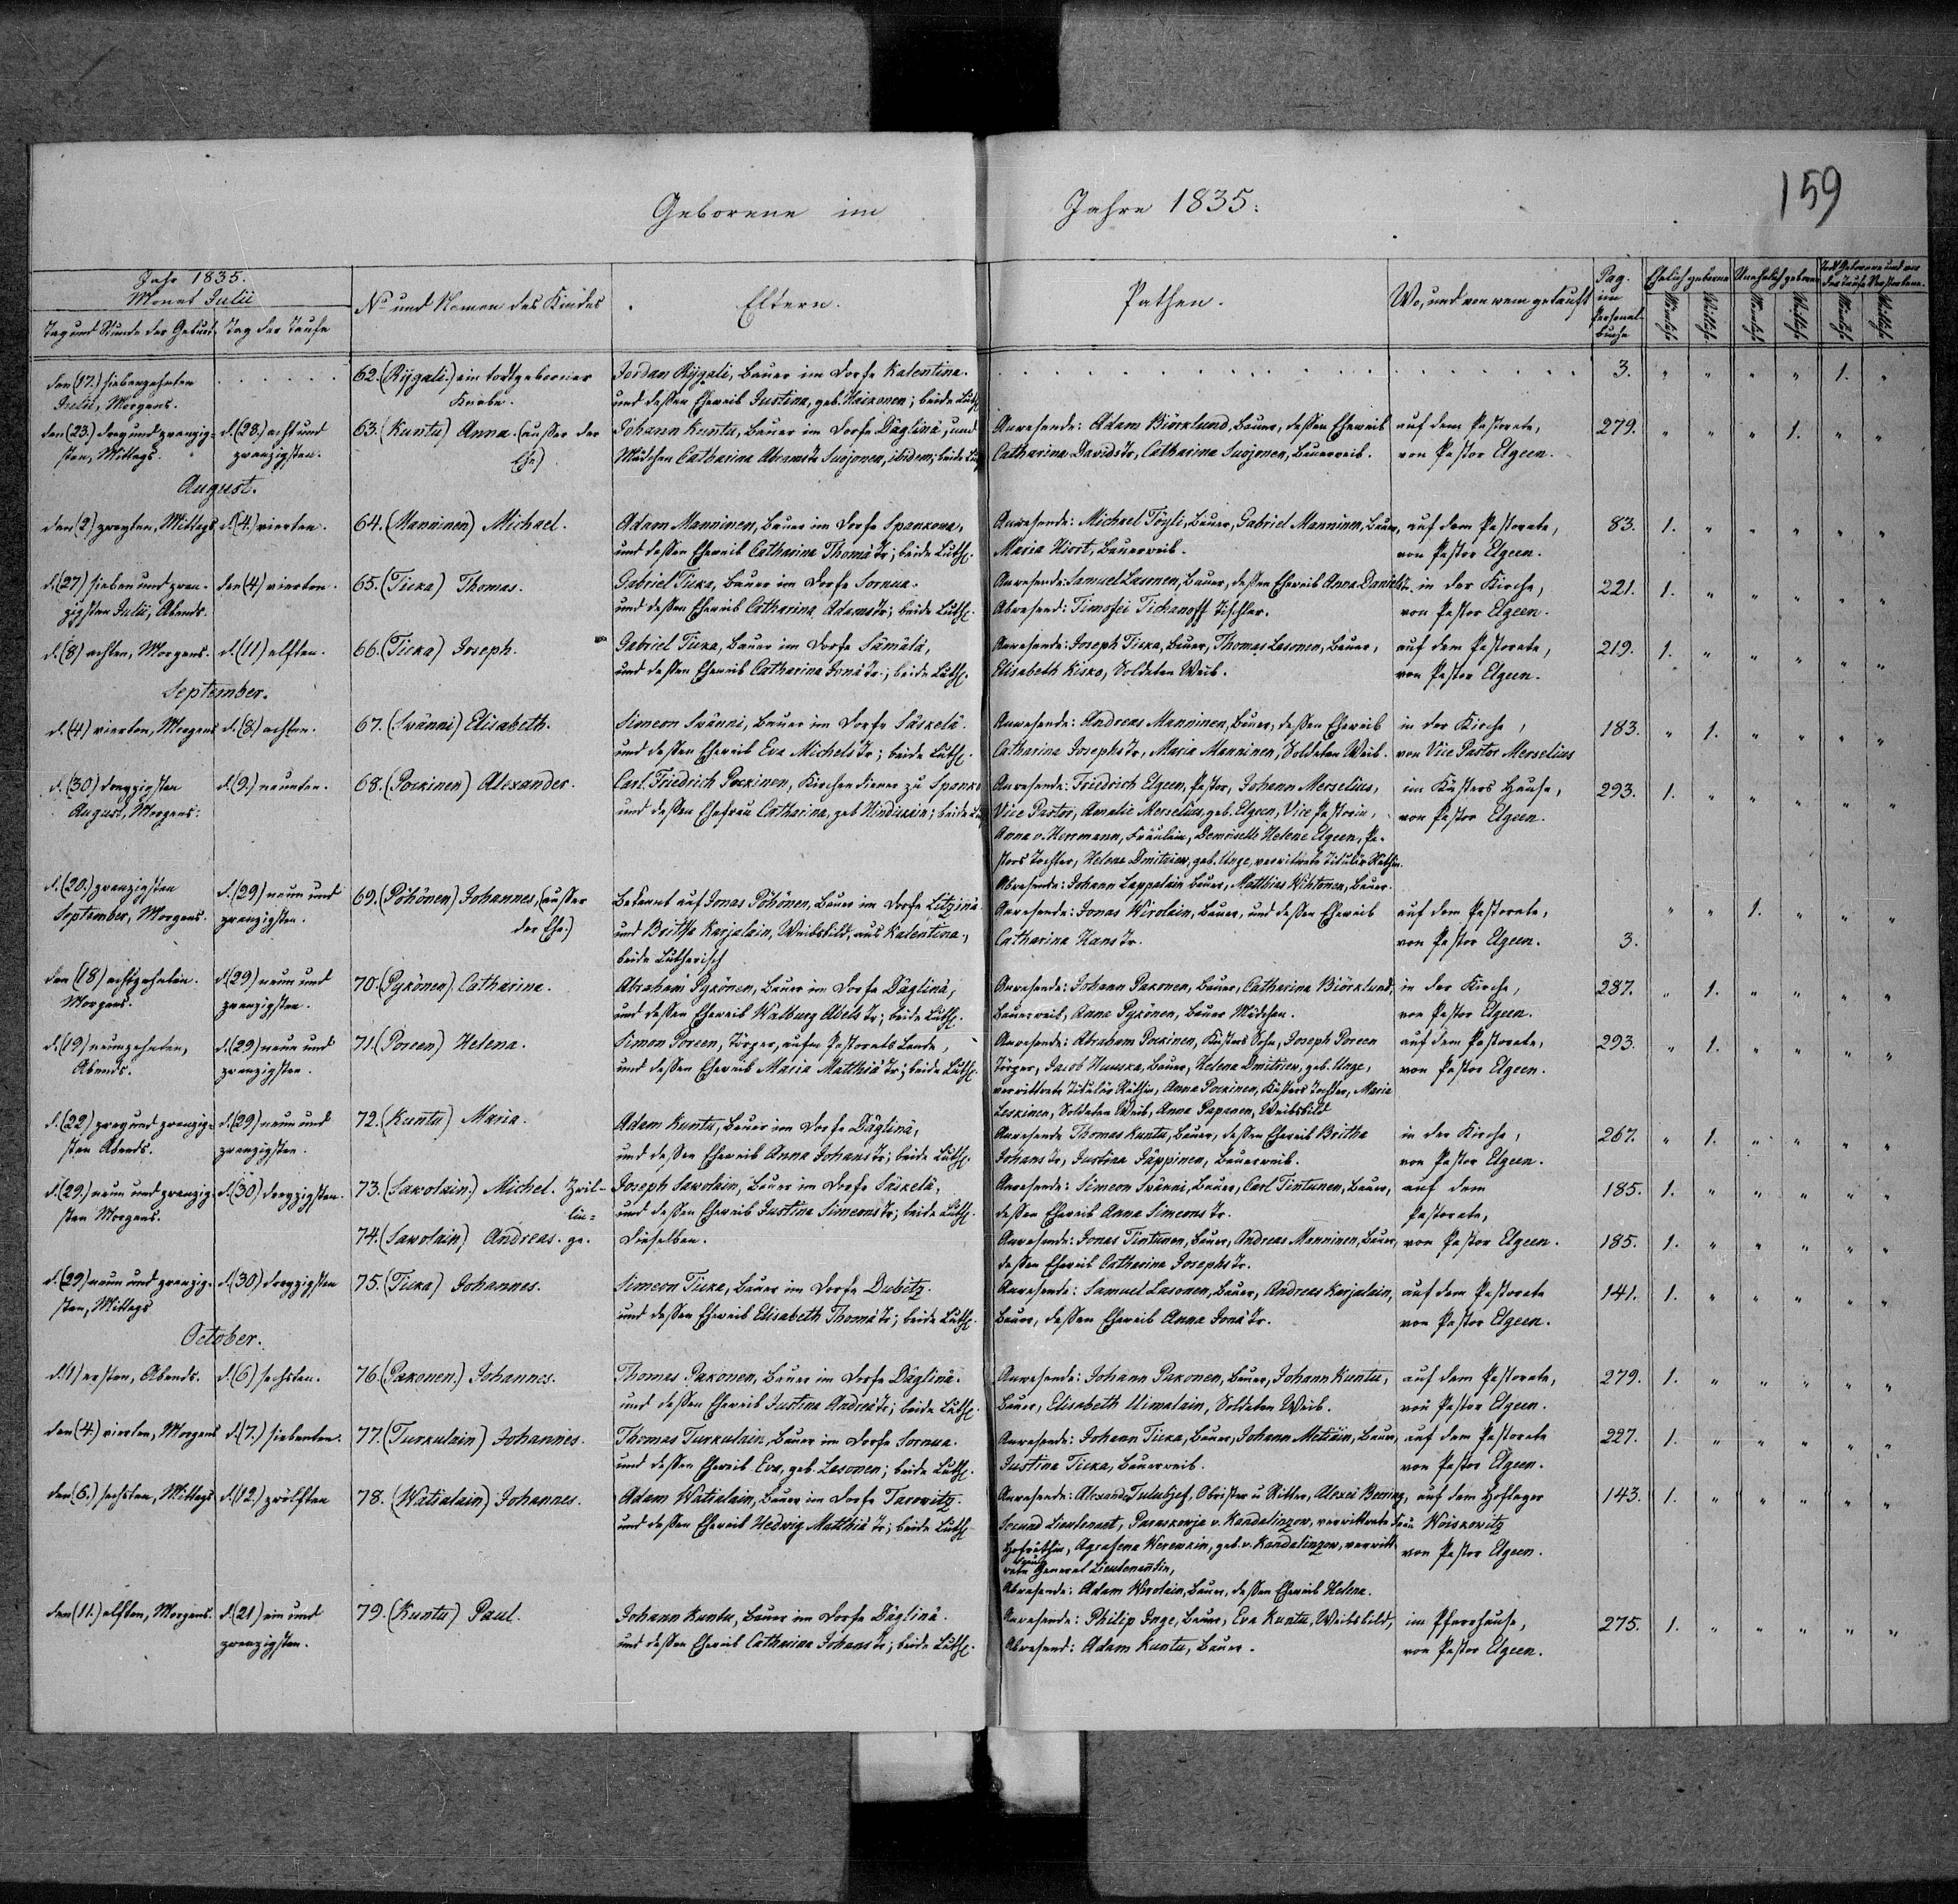 Geborene im Jahre 1835.
159
Jahr 1835.
Monat Julii
Tag und Stunde der Geburt
Tag der Taufe
No und Namen des Kindes
Eltern.
Pathen.
Wo, und von wem getauft
Pag. im Personal-Buche
Ehelich geborene
Unehelich geborene
Todt Geborene und vor der Taufe Verstorbene.
Männlich Weiblich Männlich Weiblich Männlich Weiblich
den (17.) siebenzehnten 62. (Rijgali.) ein todtgeborner Jordan Rijgali, Bauer im Dorfe Kalentina. 3. " " " " 1. "
Julii, Morgens. Knabe. und deßen Eheweib Justina, geb. Haikonen; beide Luth.
den (23.) drey und zwanzig- d. (28.) acht und 63. (Kuntu) Anna. (außer der Johann Kuntu, Bauer im Dorfe Däglinä, und Anwesende: Adam Biörklund, Bauer, deßen Eheweib auf dem Pastorate, 279. " " " 1. " "
sten, Mittags. zwanzigsten. Ehe) Mädchen Catharina Abrams Tr Suojonen, ibidem; beide Luth. Catharina Davids Tr, Catharina Suojonen, Bauerweib. von Pastor Elgeen.
August.
den (2.) zweyten, Mittags d. (4.) vierten. 64. (Manninen) Michael. Adam Manninen, Bauer im Dorfe Spankowa, Anwesende: Michael Töyli, Bauer, Gabriel Manninen, Bauer, auf dem Pastorate, 83. 1. " " " " "
und deßen Eheweib Catharina Thomä Tr; beide Luth. Maria Hiort, Bauerweib. von Pastor Elgeen.
d. (27) sieben und zwan- den (4) vierten. 65. (Ticka) Thomas. Gabriel Ticka, Bauer im Dorfe Sornua. Anwesende: Samuel Lasonen, Bauer, deßen Eheweib Anna Daniels Tr. in der Kirche, 221. 1. " " " " "
zigsten Julii, Abends. und deßen Eheweib Catharina Adams Tr; beide Luth. Abwesend: Timofei Tichanoff Tischler. von Pastor Elgeen.
d. (8) achten, Morgens. d. (11) elften. 66. (Ticka) Joseph. Gabriel Ticka, Bauer im Dorfe Sämälä, Anwesende: Joseph Ticka, Bauer, Thomas Lasonen, Bauer, auf dem Pastorate, 219. 1. " " " " "
und deßen Eheweib Catharina Jonä Tr.; beide Luth. Elisabeth Kisko, Soldaten Weib. von Pastor Elgeen.
September.
d. (4) vierten, Morgens d. (8) achten. 67. (Svänni) Elisabeth. Simeon Svänni, Bauer im Dorfe Säskelä. Anwesende: Andreas Manninen, Bauer, deßen Eheweib in der Kirche, 183. " 1. " " " "
und deßen Eheweib Eva Michels Tr; beide Luth. Catharina Josephs Tr, Maria Manninen, Soldaten Weib. von Vice Pastor Merselius
d. (30) dreyzigsten d. (9.) neunten. 68. (Pockinen) Alexander. Carl Friedrich Pockinen, Kirchendiener zu Spanko Anwesende: Friedrich Elgeen, Pastor, Johann Merselius, im Küsters Hause, 293. 1. " " " " "
August, Morgens. und deßen Ehefrau Catharina, geb. Hindukain; beide Luth. Vice Pastor, Amalie Merselius, geb. Elgeen, Vice Pastorin, von Pastor Elgeen.
Anna v. Herrmann, Fräulein, Demoiselle Helene Elgeen, Pa-
stors Tochter, Helena Dmitriew, geb. Unge, verwittwete Titulär Räthin.
Abwesende: Johann Lappalain Bauer, Matthias Wihtonen, Bauer.
d. (20.) zwanzigsten d. (29) neun und 69. (Pöhönen) Johannes, (außer Bekannt auf Jonas Pöhönen, Bauer im Dorfe Litzinä. Anwesende: Jonas Wirolain, Bauer, und deßen Eheweib auf dem Pastorate, " " 1. " " "
September, Morgens. zwanzigsten. der Ehe.) und Britha Karjalain, Weibsbild, aus Kalentina, Catharina Hans Tr. von Pastor Elgeen. 3.
beide Lutherisch
den (18) achtzehnten. d. (29) neun und 70. (Pykönen) Catharina. Abraham Pykönen, Bauer im Dorfe Däglinä, Anwesende: Johann Pakonen, Bauer, Catharina Biörklund, in der Kirche, 287. " 1. " " " "
Morgens. zwanzigsten. und deßen Eheweib Walburg Abels Tr; beide Luth. Bauerweib, Anna Pykönen, Bauer Mädchen. von Pastor Elgeen.
d. (19) neunzehnten, d. (29) neun und 71. (Poreen) Helena. Simon Poreen, Torger, aufm Pastorats Lande, Anwesende: Abraham Pockinen, Küsters Sohn, Joseph Poreen auf dem Pastorate, 293. " 1. " " " "
Abends. zwanzigsten. und deßen Eheweib Maria Matthiä Tr; beide Luth. Torger, Jacob Huuska, Bauer, Helena Dmitriew, geb. Unge, von Pastor Elgeen.
verwittwete Titulär Räthin, Anna Pockinen, Küsters Tochter, Maria
Leskinen, Soldaten Weib, Anna Papanen, Weibsbild
d. (22) zwey und zwanzig- d. (29) neun und 72. (Kuntu) Maria. Adam Kuntu, Bauer im Dorfe Däglinä, Anwesende Thomas Kuntu, Bauer, deßen Eheweib Britha in der Kirche, 267. " 1. " " " "
sten Abends. zwanzigsten. und deßen Eheweib Anna Johans Tr; beide Luth. Johans Tr, Justina Jäppinen, Bauerweib. von Pastor Elgeen.
d. (29.) neun und zwanzig- d. (30) dreyzigsten. 73. (Sawolain.) Michel. Zwil- Joseph Sawolain, Bauer im Dorfe Säskelä, Anwesende: Simeon Svänni, Bauer, Carl Tintunen, Bauer, auf dem 185. 1. " " " " "
sten Morgens. lin- und deßen Eheweib Justina Simeons Tr; beide Luth. deßen Eheweib Anna Simeons Tr. Pastorate,
74. (Sawolain) Andreas. ge. Dieselben. Anwesende: Jonas Tintunen, Bauer, Andreas Manninen, Bauer, von Pastor Elgeen. 185. 1. " " " " "
deßen Eheweib Catharina Josephs Tr.
d. (29) neun und zwanzig- d. (30) dreyzigsten 75. (Ticka) Johannes. Simeon Ticka, Bauer im Dorfe Dubitz. Anwesende: Samuel Lasonen, Bauer, Andreas Karjalain, auf dem Pastorate 141. 1. " " " " "
sten, Mittags und deßen Eheweib Elisabeth Thomä Tr; beide Luth. Bauer, deßen Eheweib Anna Jonä Tr. von Pastor Elgeen.
October.
d. (1) ersten, Abends. d. (6) sechsten. 76. (Pakonen.) Johannes. Thomas Pakonen, Bauer im Dorfe Däglinä. Anwesende: Johann Pakonen, Bauer, Johann Kuntu, auf dem Pastorate, 279. 1. " " " " "
und deßen Eheweib Justina Andreä Tr; beide Luth. Bauer, Elisabeth Uimalain, Soldaten Weib. von Pastor Elgeen.
den (4.) vierten, Morgens d. (7.) siebenten. 77. (Turkulain) Johannes. Thomas Turkulain, Bauer im Dorfe Sornua. Anwesende: Johann Ticka, Bauer, Johann Metiäin, Bauer, auf dem Pastorate 227. 1. " " " " "
und deßen Eheweib Eva, geb. Lasonen; beide Luth. Justina Ticka, Bauerweib. von Pastor Elgeen.
den (6.) sechsten, Mittags d. (12.) zwölften 78. (Watialain) Johannes. Adam Watialain, Bauer im Dorfe Tarowitz. Anwesende: Alexander Tulubjef, Obrister u Ritter, Alexei Beering, auf dem Hoflager 143. 1. " " " " "
und deßen Eheweib Hedwig Matthiä Tr; beide Luth. Secund Lieutenant, Paraskowja v. Kandalinzow, verwittwete Frau Woiskowitz
Hofräthin, Agrafena Werewkin, geb. v. Kandalinzow, verwitt- von Pastor Elgeen.
wete General Lieutenantin,
Abwesende: Adam Wirolain, Bauer, deßen Eheweib Helena.
den (11.) elften, Morgens. d. (21) ein und 79. (Kuntu) Paul. Johann Kuntu, Bauer im Dorfe Däglinä. Anwesende: Philip Inge, Bauer, Eva Kuntu, Weibsbild, im Pfarrhause, 275. 1. " " " " "
zwanzigsten. und deßen Eheweib Catharina Johans Tr; beide Luth. Abwesend: Adam Kuntu, Bauer. von Pastor Elgeen.